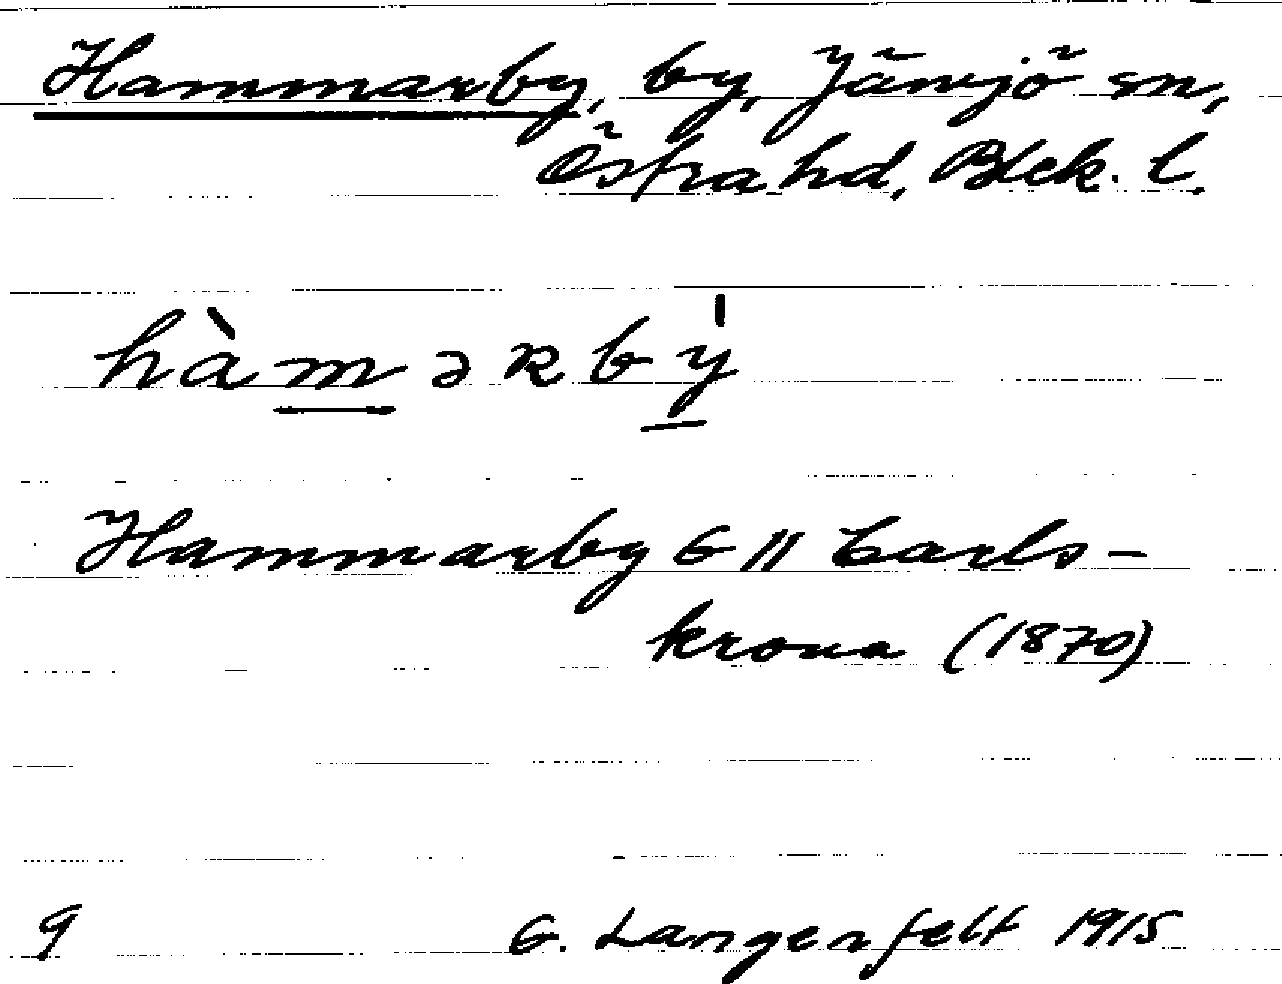 Hammarby, by, Jämjö sn,
Östra hd, Blek. l.
hàmərbý
Hammarby G 11 Carls-
krona (1870)
9 G. Langenfelt 1915